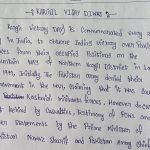 KARGIL VIJAY DIWAS
Kargil victory Day is Commemorated every
July in India, to observe India's victory over Pakis
forces from their occupied Positions on the
mountain tops of Northern Kargil District in Lad
1999. Initially, the Pakistan army denied their
involvement in the war, claiming that it was
Kashmiri militants forces. However documents
left behind by Casualties, testimony of POWs
statements by the Prime Minister of
Pakistan Nawaz Sharif and Pakistan Army